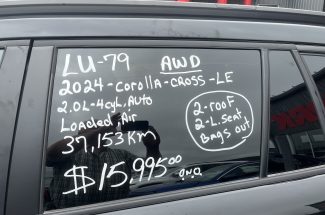 LU-79 AWD
2024-corolla-CROSS-LE
2.0L-4cyl, Auto
Loaded, Air
37,153 KM
$15,995.00
o.n.o
2-roof
2-L.seat,
Bags out